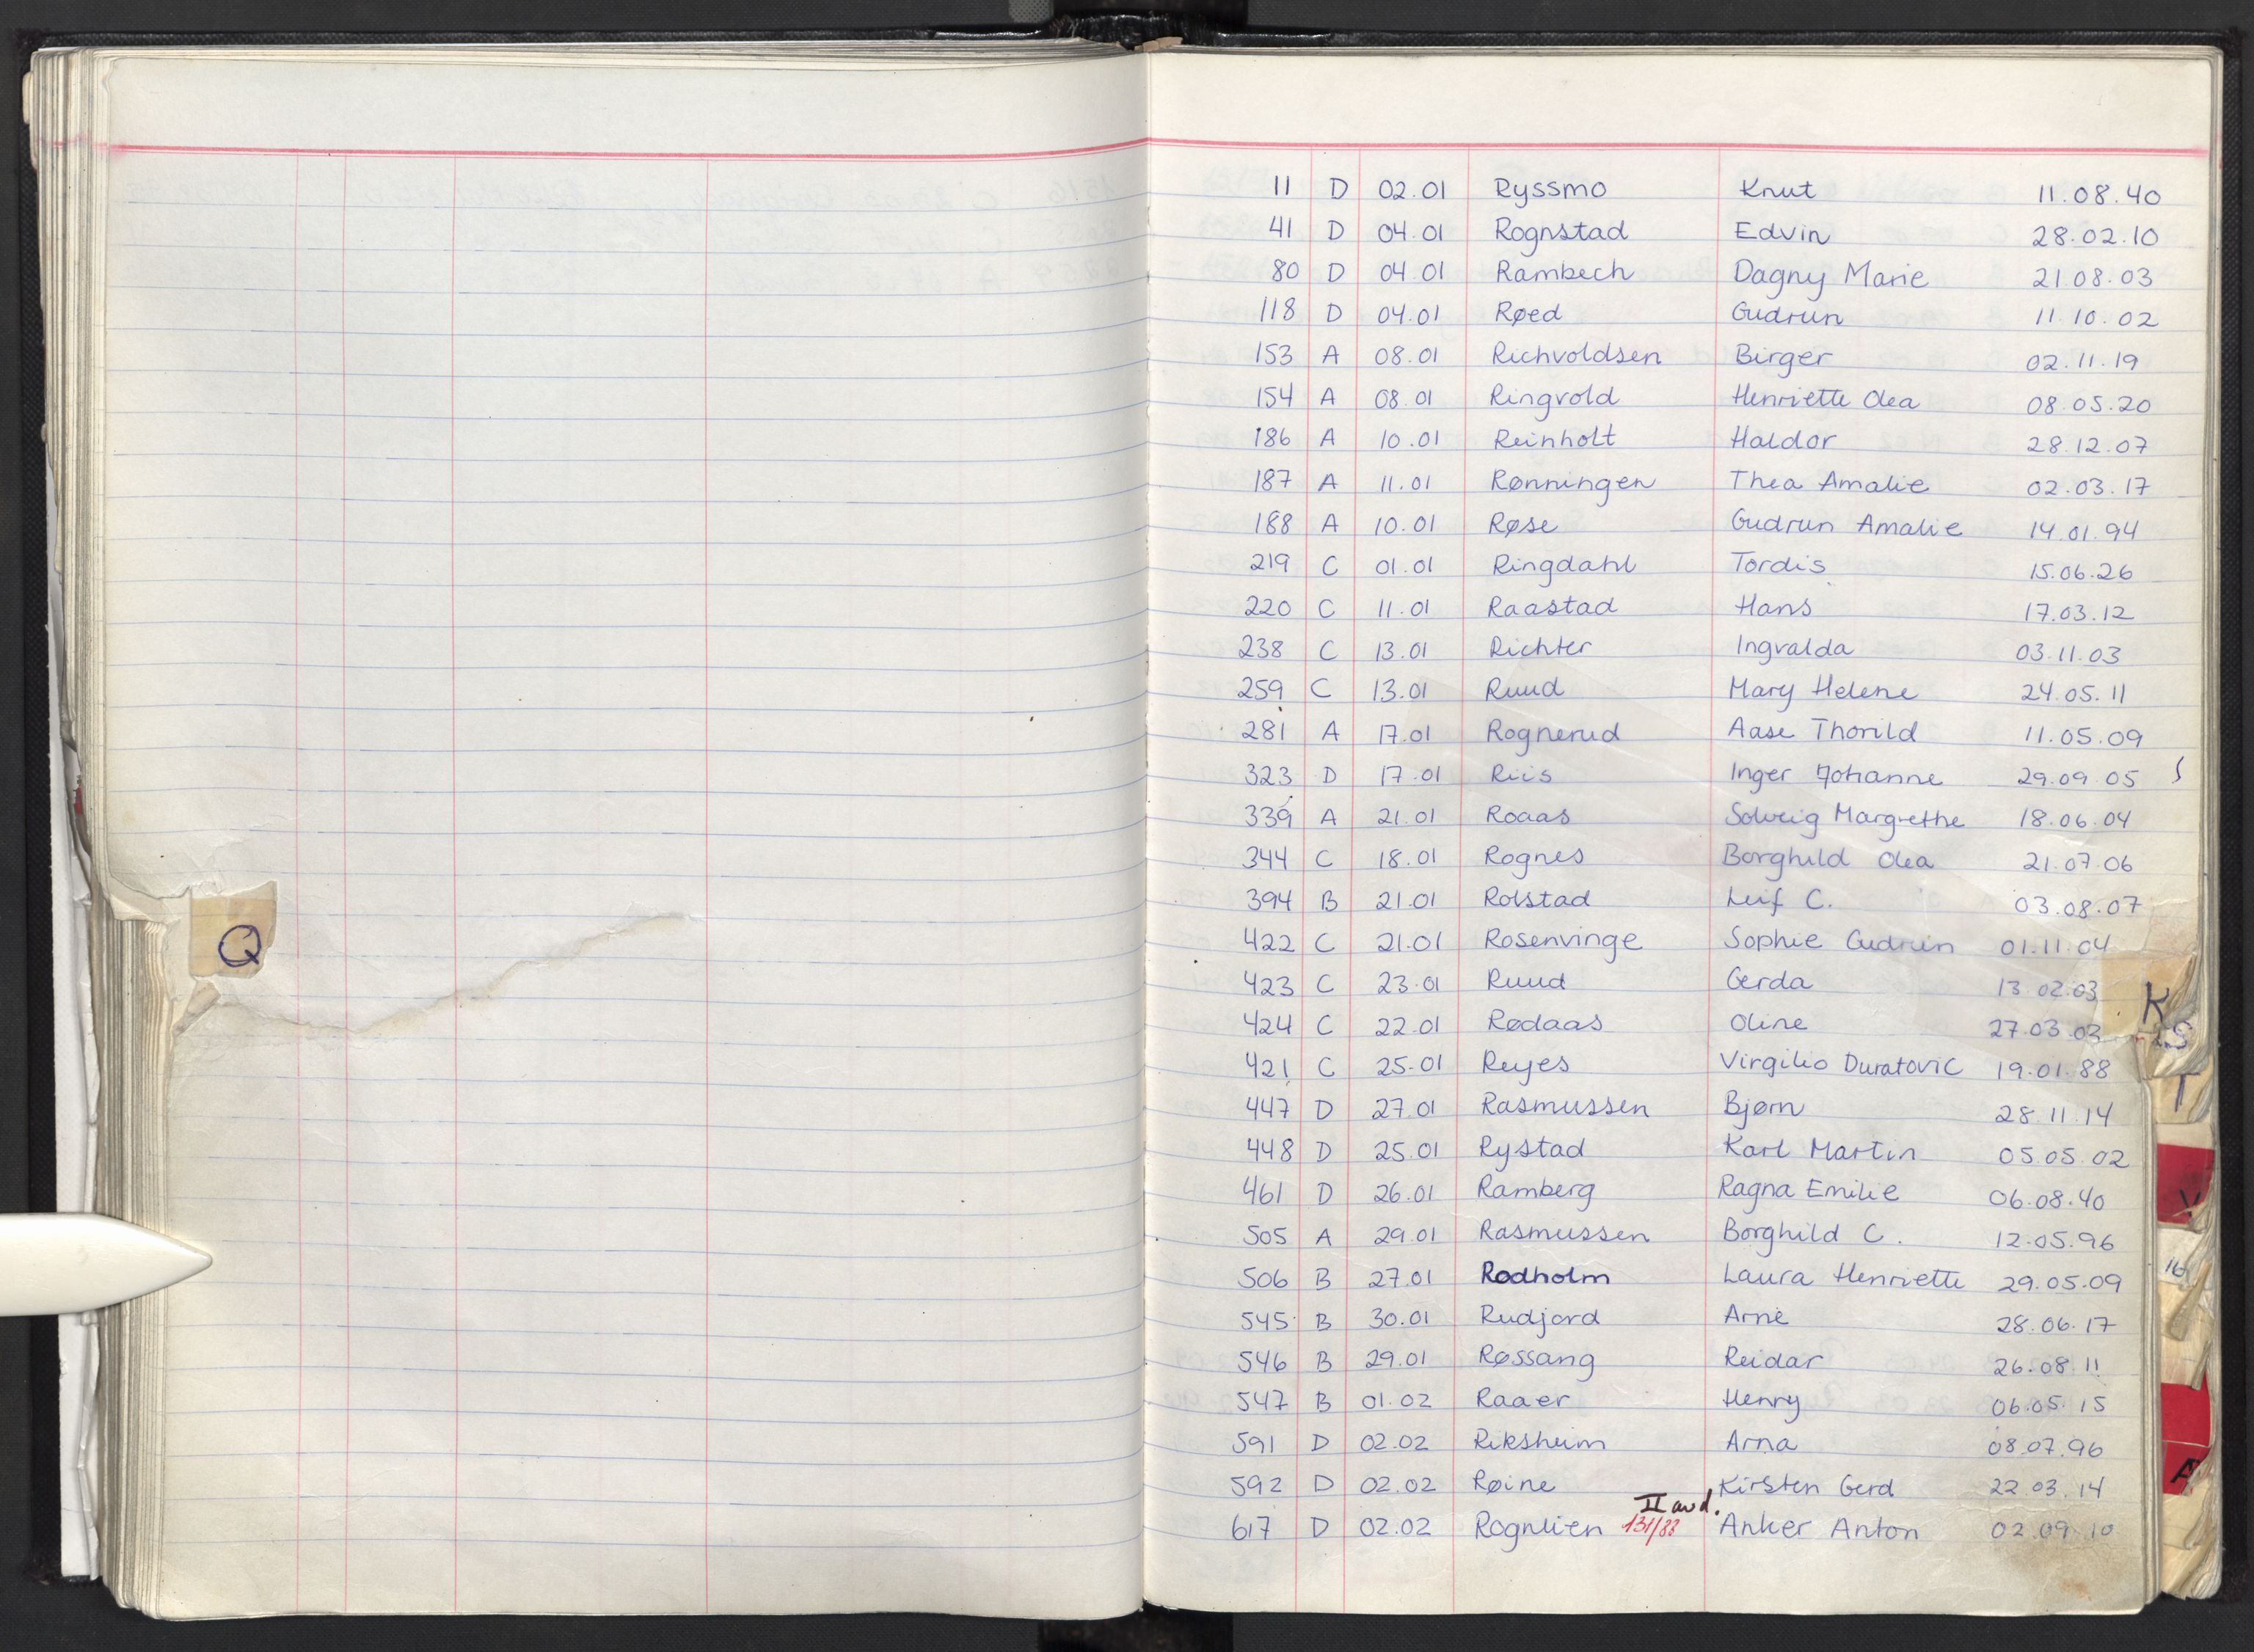 11 D 02.01 Ryssmo Knut 11.08.40
41 D 04.01 Rognstad Edvin 28.02.10
80 D 04.01 Rambech Dagny Marie 21.08.03
118 D 04.01 Røed Gudrun 11.10.02
153 A 08.01 Richvoldsen Birger 02.11.19
154 A 08.01 Ringvold Henriette Olea 08.05.20
186 A 10.01 Reinholt Haldor 28.12.07
187 A 11.01 Rønningen Thea Amalie 02.03.17
188 A 10.01 Røse Gudrun Amalie 14.01.94
219 C 01.01 Ringdahl Tordis 15.06.26
220 C 11.01 Raastad Hans 17.03.12
238 C 13.01 Richter Ingvalda 03.11.03
259 C 13.01 Ruud Mary Helene 24.05.11
281 A 17.01 Rognerud Aase Thorild 11.05.09
323 D 17.01 Riis Inger Johanne 29.09.05
339 A 21.01 Roaas Solveig Margrethe 18.06.04
344 C 18.01 Rognes Borghild Olea 21.07.06
394 B 21.01 Rolstad Leif C. 03.08.07
Q
422 C 21.01 Rosenvinge Sophie Gudrun 01.11.04
423 C 23.01 Ruud Gerda 13.02.03
K
424 C 22.01 Rødaas Oline 27.03.03
S
421 C 25.01 Reyes Virgilio Duratovic 19.01.88
T
447 D 27.01 Rasmussen Bjørn 28.11.14
448 D 25.01 Rystad Karl Martin 05.05.02
461 D 26.01 Ramberg Ragna Emilie 06.08.40
V
505 A 29.01 Rasmussen Borghild C. 12.05.96
506 B 27.01 Rodholm Laura Henriette 29.05.09
545 B 30.01 Rudjord Arne 28.06.17
546 B 29.01 Røssang Reidar 26.08.11
547 B 01.02 Raaer Henry 06.05.15
591 D 02.02 Riksheim Arna 08.07.96
592 D 02.02 Røine Kirsten Gerd 22.03.14
II avd.
617 D 02.02 Rognlien 131/88 Anker Anton 02.09.10